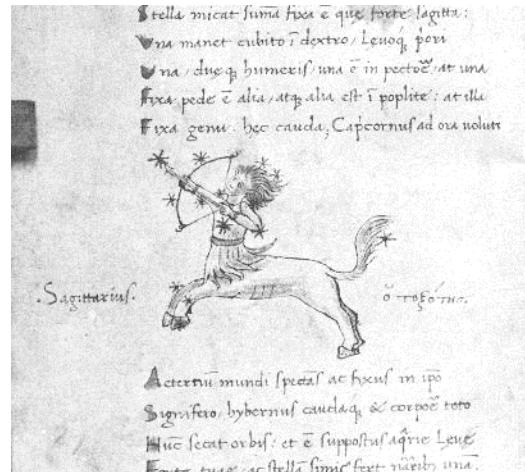 Stella micat sum̄a fixa ē que forte sagitta:
Vna manet cubito ī dextro, Leuoq; pori
Vna, dueq; humeris, una ē in pectoē, at una
Fixa pede ē alia, atq; alia est ī poplite: at illa
Fixa genu: hec cauda, Cap̄cornus ad ora uolutt
.Sagittarius.
ὁ τοξότης.
Ac tertiū mundi spectās ac fixus in ip̄o
Signifero, hybernus caudaq; & corpoē toto
Hūc secat orbis: et ē suppostus